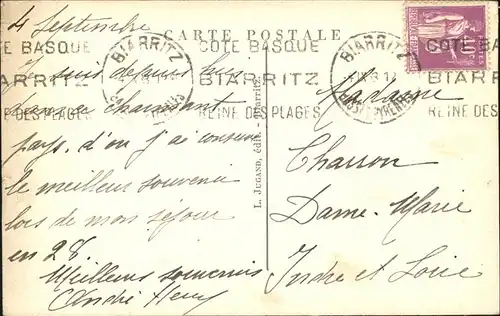 CARTE POSTALE
4 Septembre
TE BASQUE
BIARRITZ
CÔTE BASQUE
BIARRITZ
CÔTE BASQUE
IARRITZ
BIARRITZ
BIAR
E DES PLAGES
REINE DES PLAGES
REINE DES
Je suis depuis hier
dans ce charmant
pays, d'où j'ai conservé
le meilleur souvenir
lors de mon séjour
en 28.
Meilleurs souvenirs
André
L. JUGAND, édit. - Biarritz.
Madame
Charron
Dame-Marie
Indre et Loire